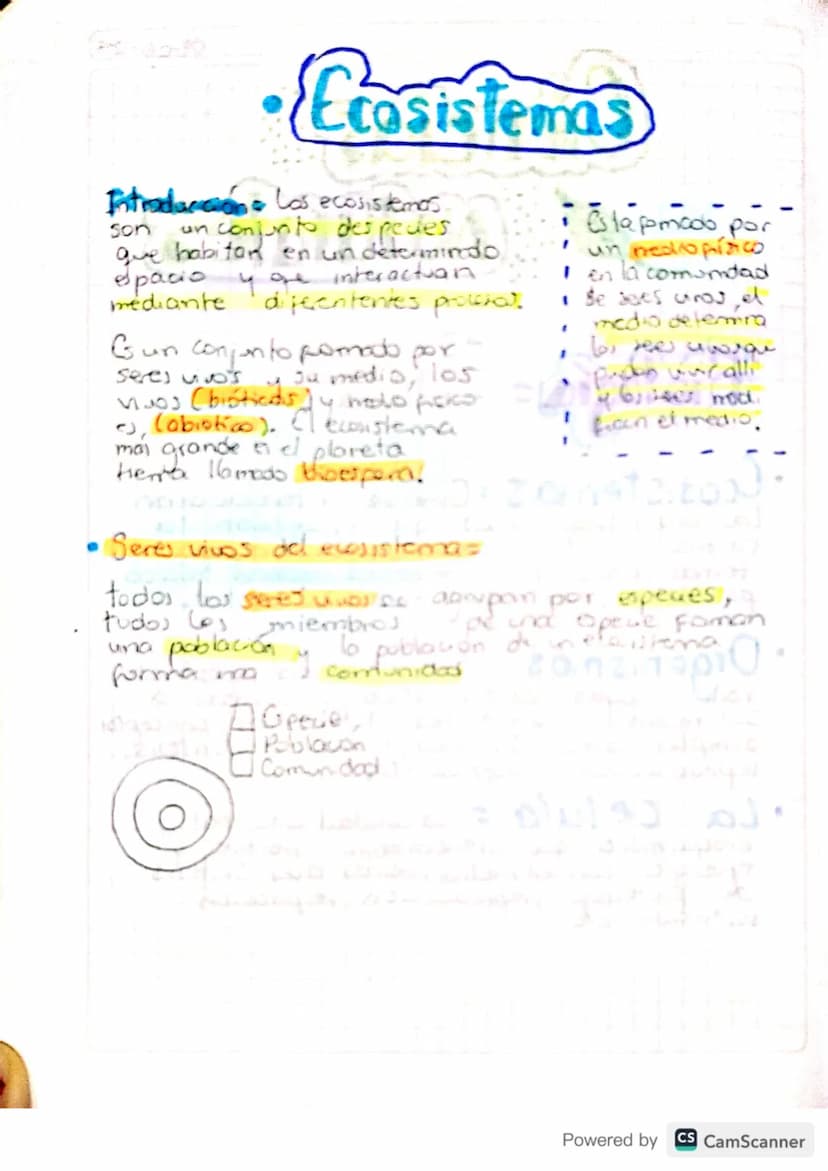 Ecosistemas
Introducción: Los ecosistemas
son un conjunto despecies
que habitan en un determinado
espacio y que interactuan
mediante procesos.
Es un conjunto formado por
seres vivos y su medio, los
vivos (bióticos) y medio fisico
es, (abiotico). El ecosistema
más grande es el planeta
tierra llamado biosfera!
Esta formado por
un medio físico
en la comunidad
de seres vivos, el
medio determina
los seres vivos que
pueden vivir alli
y los seres modi
fican el medio.
Seres vivos del ecosistema=
todos los seres vivos se agrupan por especies,
todos los miembros de una especie forman
una población y la población de un ecosistema
forma una comunidad
Especie,
Población
Comunidad
Powered by CS CamScanner